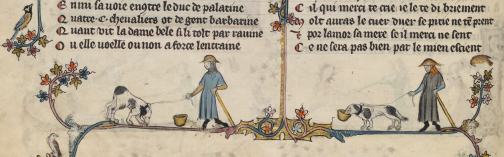 E nmi sa uoie engtre le duc de palatine
Q uatre .c. cheualiers ot de gent barbarine
Q uant uit la dame bele si li tolt par rauine
O u elle uoelle ou non a force lentraine
C il qui merci te crie ie le te di briement
olt auras le cuer duer se pitie ne tẽ prent
por lamor sa mere se il merci ne sent
C e ne sera pas bien par le mien escient